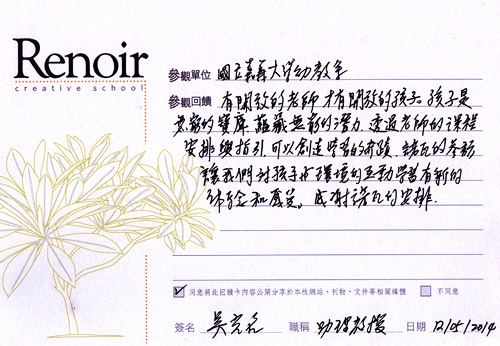 Renoir
creative school
參觀單位 國立嘉義大學幼教系
參觀回饋 有開放的老師才有開放的孩子。孩子是
無窮的寶庫，蘊藏無窮的潛力，透過老師的課程
安排與指引，可以創造學習的奇蹟。諾瓦的參訪
讓我們對孩子與環境的互動學習有新的
體驗和感受。感謝諾瓦的安排.
同意將此回饋卡內容公開分享於本校網站、刊物、文件等相關媒體 不同意
簽名 吳 職稱 助理教授 日期 12/05/2014